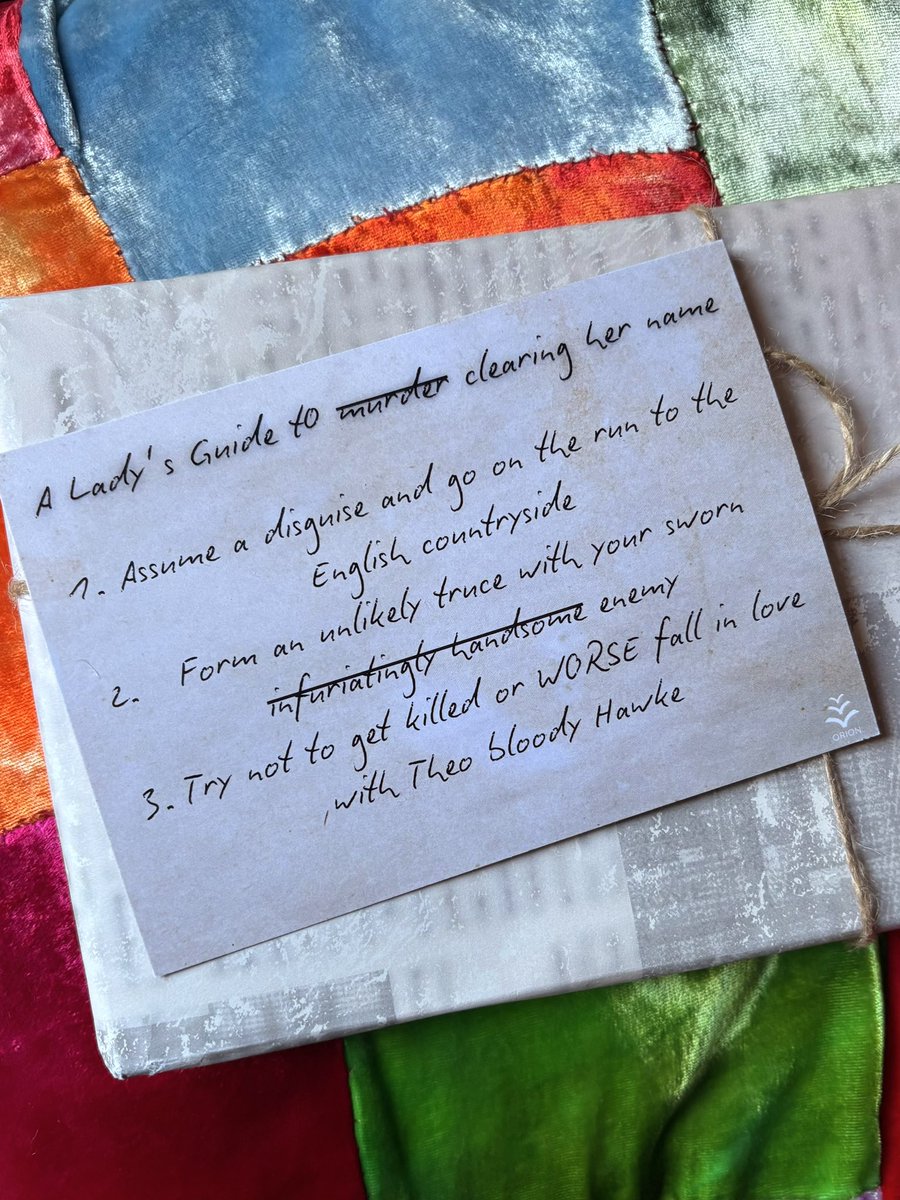 A Lady's Guide to murder clearing her name
1. Assume a disguise and go on the run to the
English countryside
2. Form an unlikely truce with your sworn
infuriatingly handsome enemy
3. Try not to get killed or WORSE fall in love
with Theo bloody Hawke
ORION